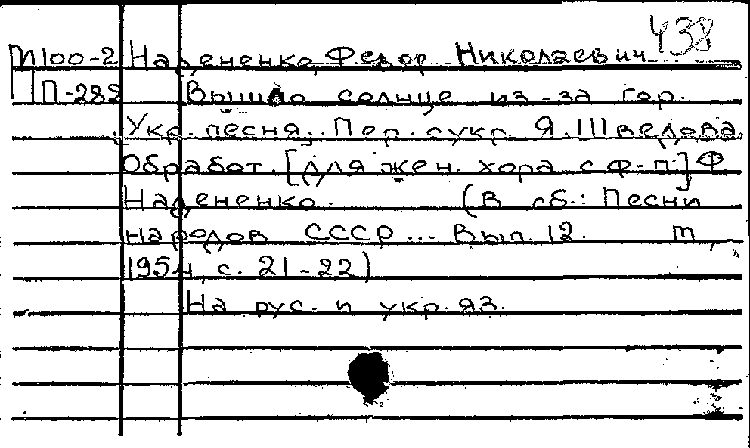 438
М100-2 Надененко, Федор Николаевич
П-282 Вышло солнце из-за гор.
Укр. песня. Пер. с укр. Я. Шведова.
Обработ. [для жен. хора с ф-п.] Ф.
Надененко. (В сб.: Песни
народов СССР... Вып. 12. М.,
1954, с. 21-22)
На рус. и укр. яз.